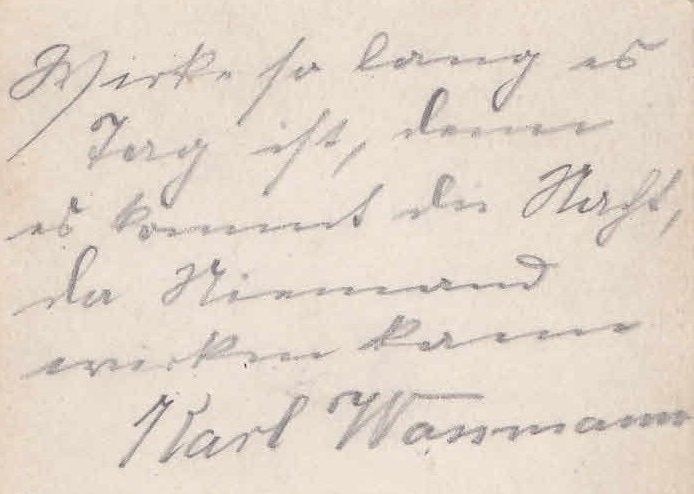 Wirke so lang es
Tag ist, denn
es kommt die Nacht,
da Niemand
wirken kann
Karl Wassmann